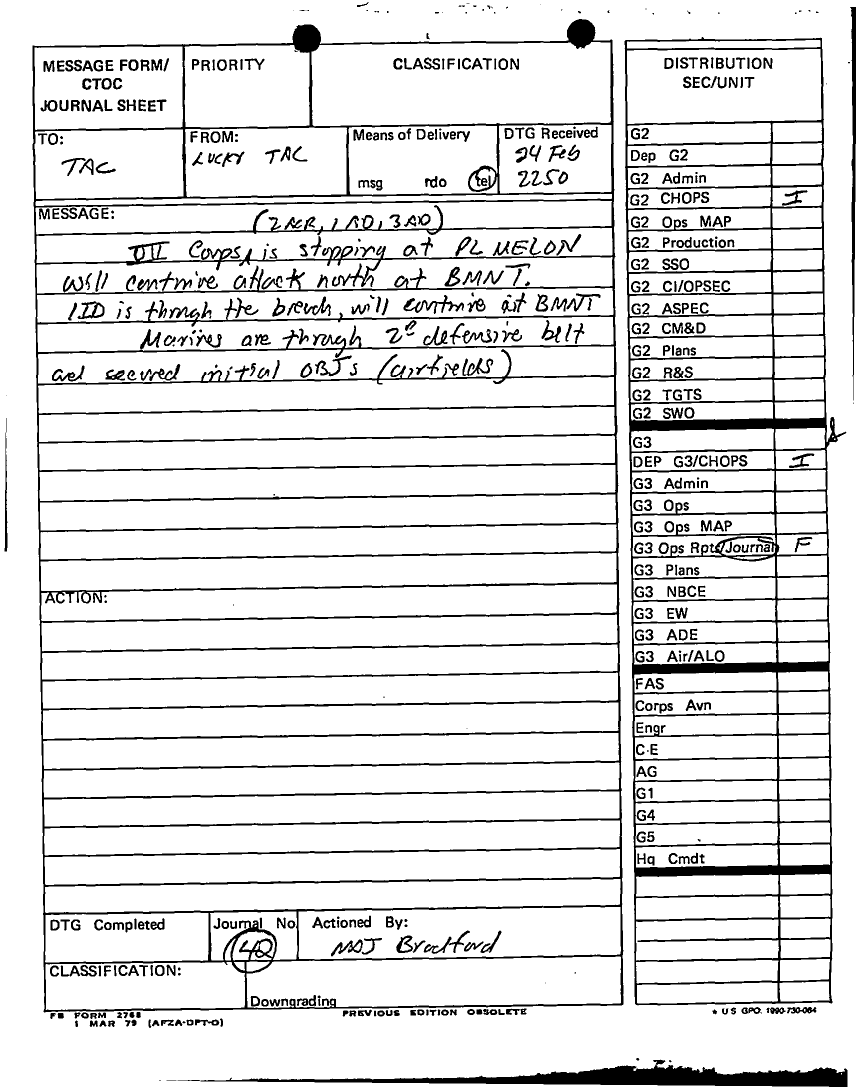 MESSAGE FORM/
CTOC
JOURNAL SHEET
PRIORITY
CLASSIFICATION
TO:
TAC
FROM:
LUCKY TAC
Means of Delivery
msg rdo tel
DTG Received
24 Feb
2250
MESSAGE:
(2ACR, 1AD, 3AD)
VII Corps is stopping at PL MELON
will continue attack north at BMNT.
1ID is through the breach, will continue at BMNT
Marines are through 2d defensive belt
and secured initial OBJs (airfields)
ACTION:
DTG Completed
Journal No.
42
Actioned By:
MAJ Bradford
CLASSIFICATION:
Downgrading
FB FORM 2768
1 MAR 79 (AFZA-DPT-O)
PREVIOUS EDITION OBSOLETE
DISTRIBUTION
SEC/UNIT
G2
Dep G2
G2 Admin
G2 CHOPS I
G2 Ops MAP
G2 Production
G2 SSO
G2 CI/OPSEC
G2 ASPEC
G2 CM&D
G2 Plans
G2 R&S
G2 TGTS
G2 SWO
G3
DEP G3/CHOPS I
G3 Admin
G3 Ops
G3 Ops MAP
G3 Ops Rpts/Journal F
G3 Plans
G3 NBCE
G3 EW
G3 ADE
G3 Air/ALO
FAS
Corps Avn
Engr
C-E
AG
G1
G4
G5
Hq Cmdt
* U S GPO: 1990-730-064